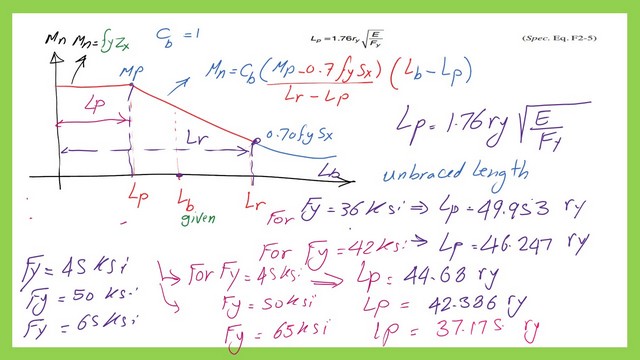 Mn Mn=fyZx Cb=1 Lp=1.76ry√E/Fy (Spec. Eq. F2-5)
Mp Mn=Cb(Mp-0.7fySx)(Lb-Lp)
Lr-Lp
Lp
Lp=1.76 ry √E/Fy
Lr 0.70fySx
Lb
unbraced length
Lp Lb Lr
given
For Fy=36ksi ⇒ Lp=49.953 ry
For Fy=42ksi → Lp=46.247 ry
Fy=45ksi For Fy=45ksi ⇒ Lp=44.68 ry
Fy=50ksi Fy=50ksi Lp = 42.386 ry
Fy=65ksi Fy=65ksi Lp = 37.175 ry